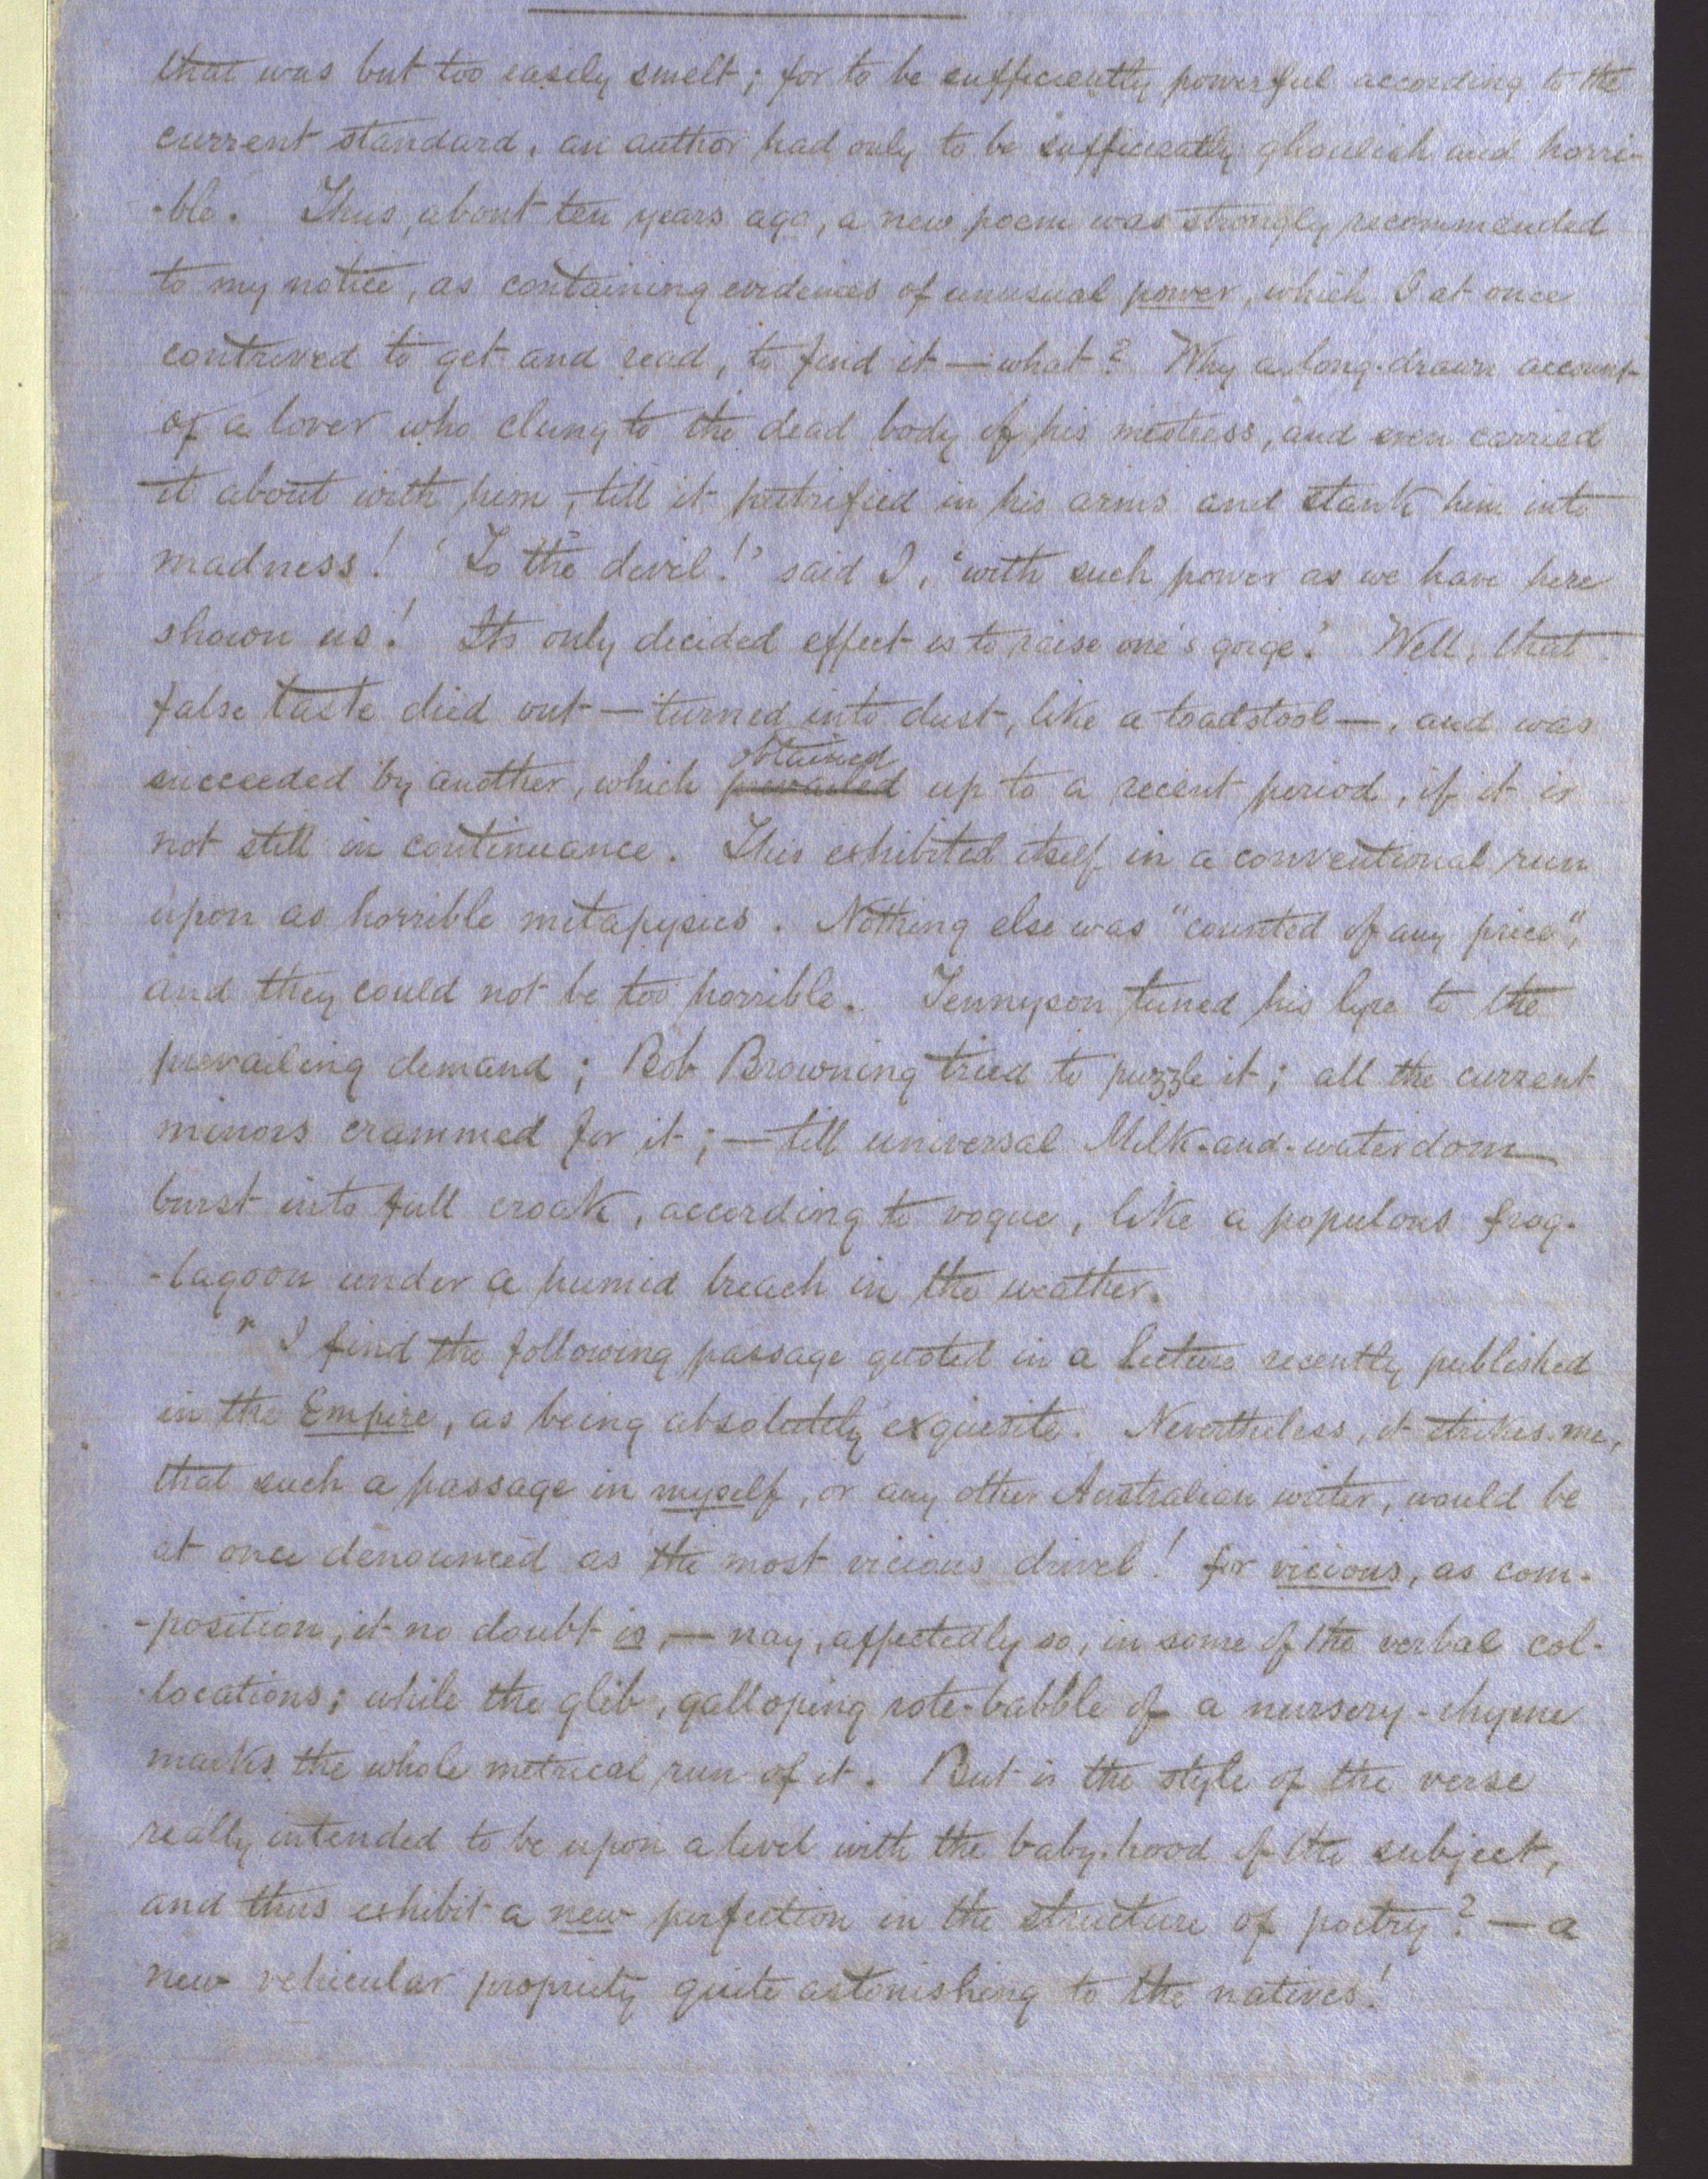 that was but too easily smelt; for to be sufficiently powerful according to the
current standard, an author had only to be sufficiently ghoulish and horri-
-ble. Thus, about ten years ago, a new poem was strongly recommended
to my notice, as containing evidences of unusual power, which I at once
contrived to get and read, to find it — what? Why a long-drawn account
of a lover who clung to the dead body of his mistress, and even carried
it about with him, till it putrified in his arms and stank him into
madness! 'To the devil!' said I, 'with such power as we have here
shown us! Its only decided effect is to raise one's gorge.' Well, that
false taste died out — turned into dust, like a toadstool —, and was
obtained
succeeded by another, which prevailed up to a recent period, if it is
not still in continuance. This exhibited itself in a conventional run
upon as horrible metapysics. Nothing else was "counted of any price",
and they could not be too horrible. Tennyson tuned his lyre to the
prevailing demand; Bob Browning tried to puzzle it; all the current
minors crammed for it; — till universal Milk-and-waterdom
burst into full croak, according to vogue, like a populous frog-
-lagoon under a humid breach in the weather.
" I find the following passage quoted in a lecture recently published
in the Empire, as being absolutely exquisite. Nevertheless, it strikes me,
that such a passage in myself, or any other Australian writer, would be
at once denounced as the most vicious drivel! for vicious, as com-
-position, it no doubt is, — nay, affectedly so, in some of the verbal col-
-locations; while the glib, galloping rote-babble of a nursery-rhyme
marks the whole metrical run of it. But is the style of the verse
really intended to be upon a level with the baby-hood of the subject,
and thus exhibit a new perfection in the structure of poetry? — a
new vehicular propriety quite astonishing to the natives!